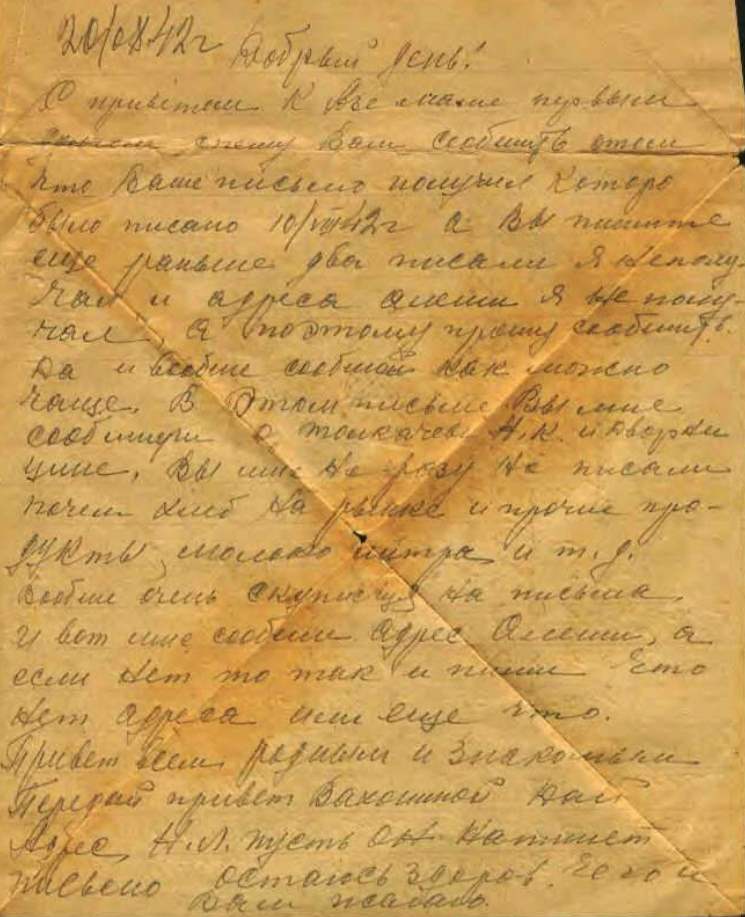 20/IX 42г Добрый день!
С приветом к Вам
спешу Вам сообщить отом
что Ваше письмо получил которо
было писано 10/VIII 42г а Вы пишите
еще раньше два писали я неполу-
чал и адреса Алеши я не полу-
чал а поэтому прошу сообщить.
Да и вообще сообщай как можно
чаще. В этом письме Вы мне
сообщили о Толкачев Н.К. и
Вы мне не разу не писали
почем хлеб на рынке и прочие про-
дукты молоко литра и т.д.
Вообще очень на письма
и вот мне сообщи адрес Алеши, а
если нет то так и пиши что
нет адреса или еще что.
Привет всем родным и знакомым
Передай привет Вахониной дай
Адрес Н.Л. пусть он напишет
письмо остаюсь здоров. чего и
Вам желаю.